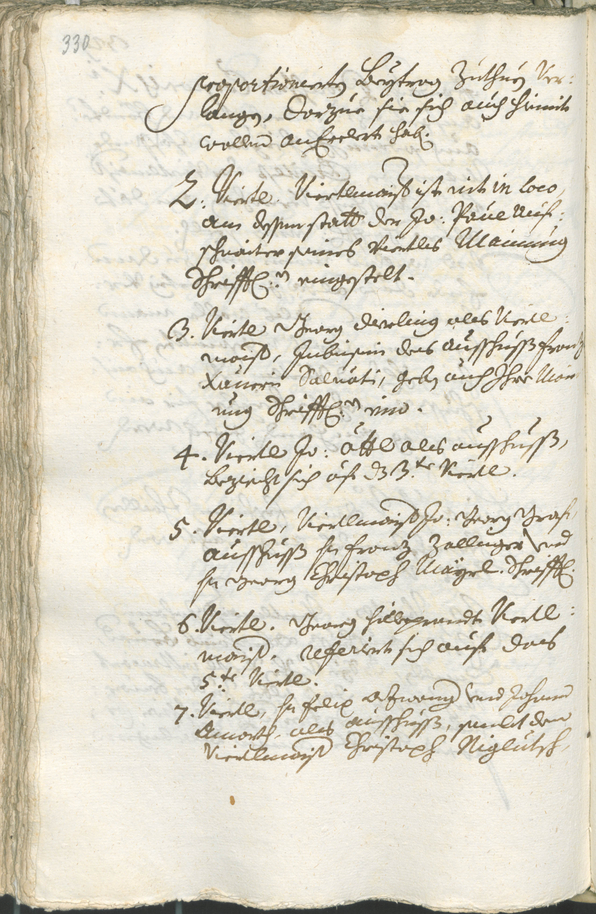 330
proportionierten Beytrag Zuthuen Ver:
langen, darzue sie sich auch hiemit
wollen anerclert hab:
2. Viertl. Viertlmaister ist nit in loco,
an dessen statt der Jo: Paul Auf:
schnaiter seines Viertls Mainung
Schrifftl: eingestelt.
3. Viertl Georg als Viertl:
maister, des ausschuss Franz
Xaueri Saluati, geben auch Ihre Main
ung Schrifftl: ein.
4. Viertl Jo: als ausschuss,
Bezieht sich auf dz 3.te Viertl.
5. Viertl, Viertlmaister Jo: Georg Graf,
ausschuss hr Franz Zallinger und
hr Georg Christoph Mayrl. Schrifftl:
6. Viertl. Georg Hilleprandt Viertl:
maister. referirt sich auf das
5.te Viertl.
7. Viertl, hr Felix und Johann
als ausschuss, sambt dem
Viertlmaister Christoph Niglutsch,